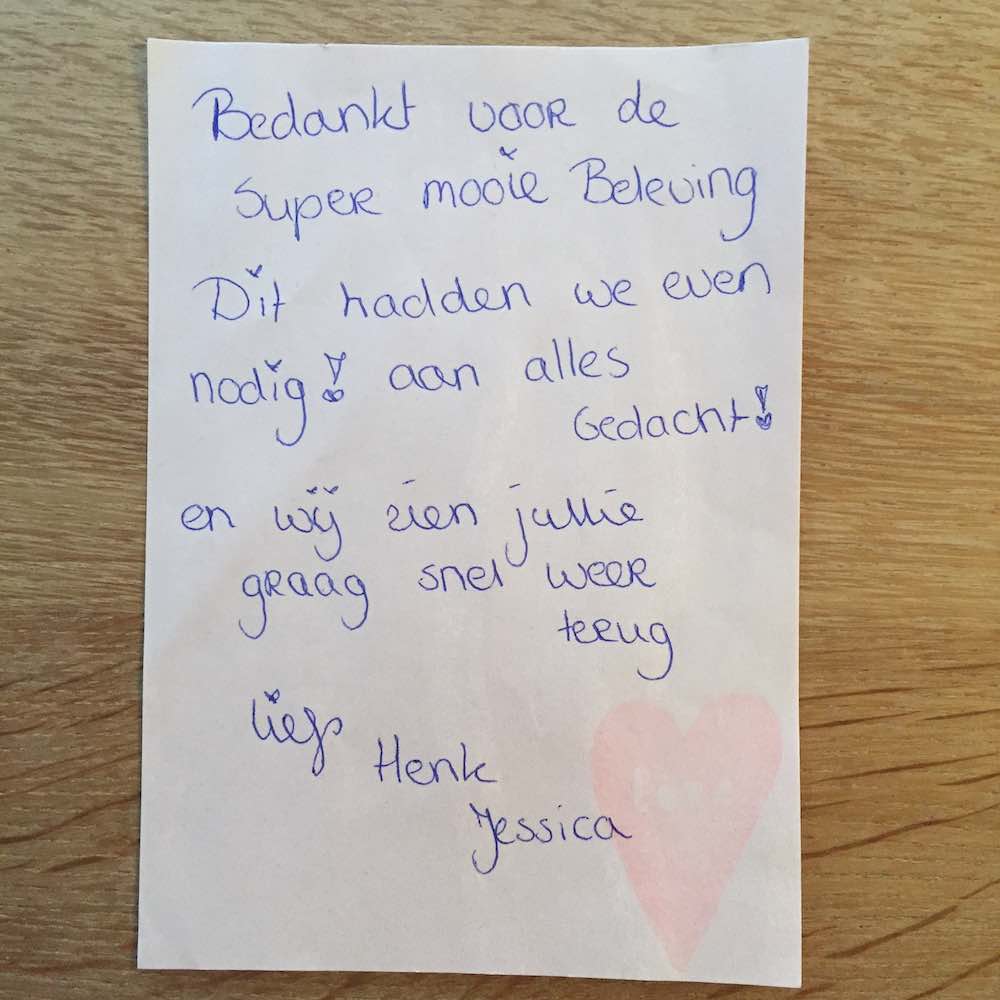 Bedankt voor de
Super mooie Beleving
Dit hadden we even
nodig! aan alles
Gedacht!
en wij zien jullie
graag snel weer
terug
liefs
Henk
Jessica
Love